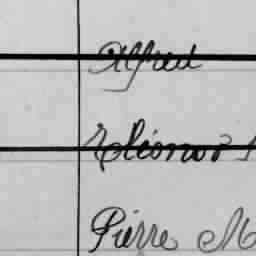 Alfred
Eléonore
Pierre M